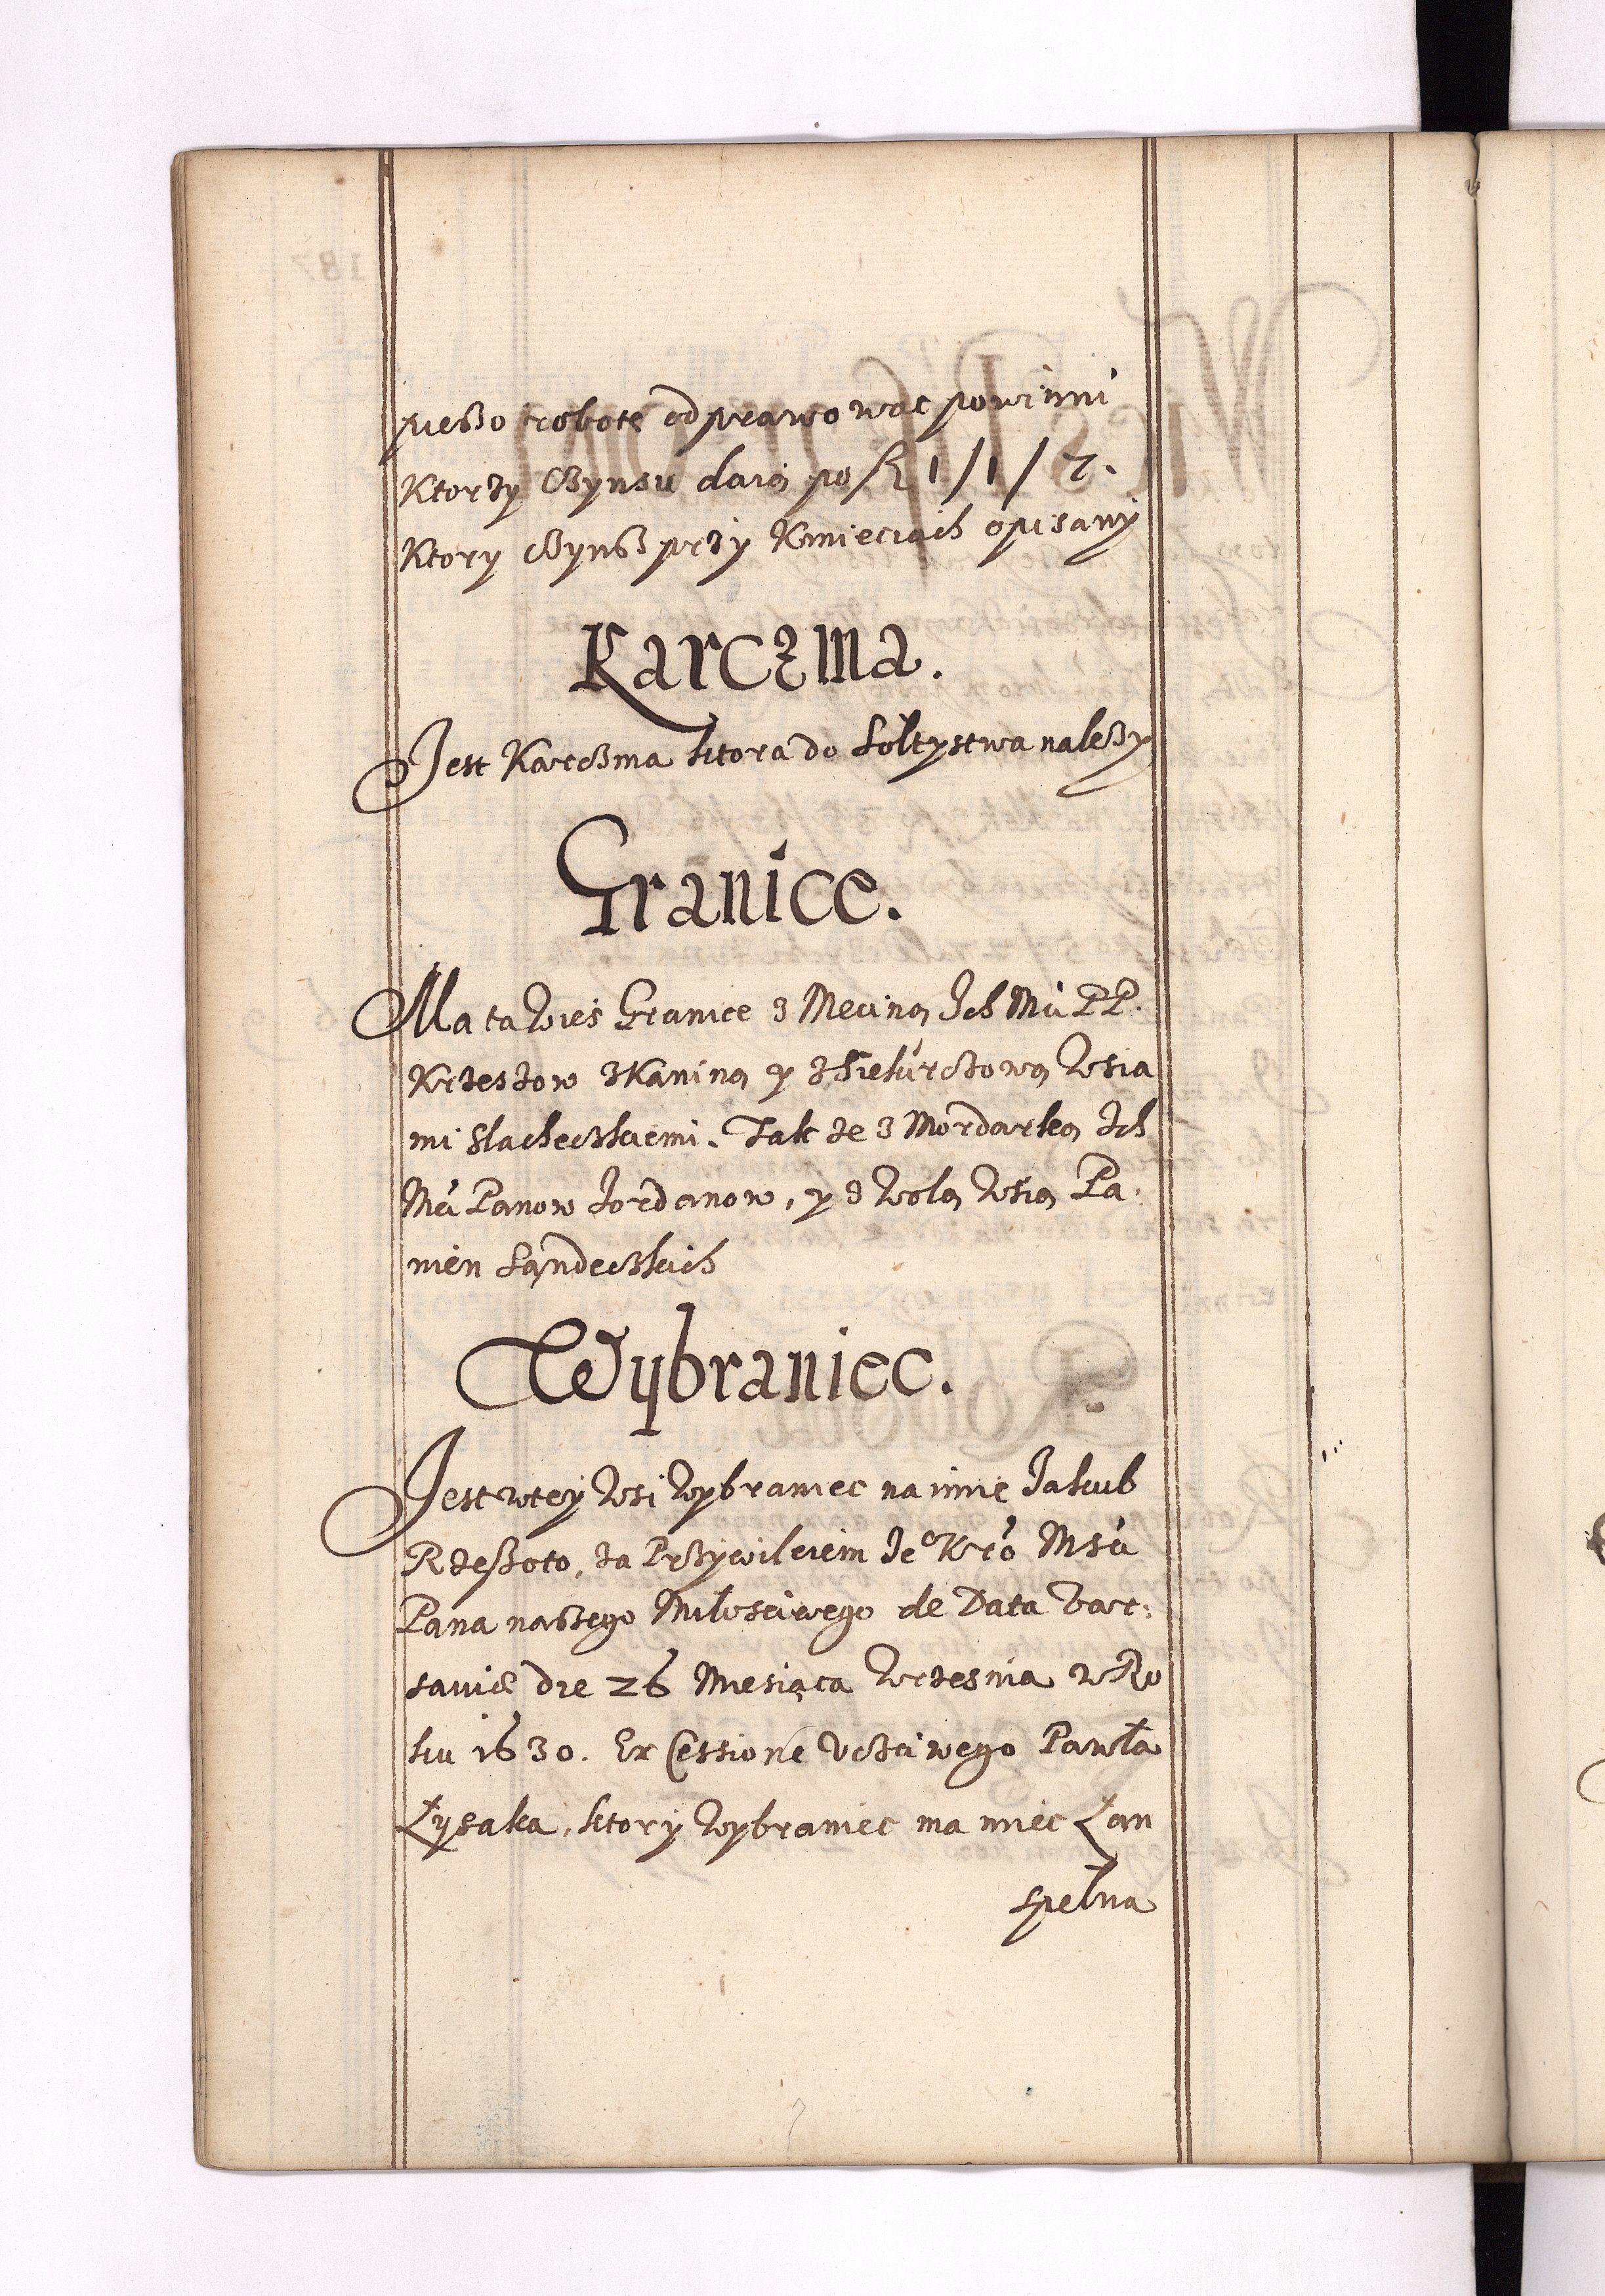 pieszo robotę odprawowac powinni
Ktorzy Czynsu daią po fl 1/1/2.
Ktory Czynsz przy Kmieciach opisany
Karczma.
Jest Karczma ktora do Soltystwa nalezy
Granice.
Ma ta Wies Granice z Meciną Ich Mci PP.
Krzeszow z Kaniną y z Siekurczową Wsia
mi Slacheczkiemi. Takze z Mordarką Ich
Mci Panow Jordanow, y z Wolą Wsią Pa:
nien Sandeczkich
Wybraniec.
Jest w tey Wsi Wybraniec na imie Jakub
Rzeszoto, za Przywileiem Je° Kro Msci
Pana naszego Miłosciwego de Data Var:
saviæ die 26 Mesiąca Wrzesnia w Ro
ku 1630. Ex Cessione Vczciwego Pawła
Łysaka, ktory Wybraniec ma miec Łan
spełna